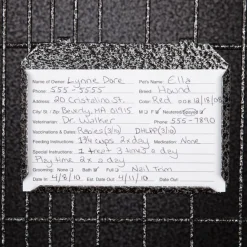 Name of Owner: Lynne Dore Pet's Name: Ella
Phone: 555-5555 Breed: Hound
Address: 20 Cristolino St. Color: Red DOB 12/18/08
City / Zip: Beverly, MA 01915 M F Neutered/Spayed
Veterinarian: Dr. Walker Phone: 555-7890
Vaccinations & Dates: Rabies (3/10) DHLPP (3/10)
Feeding Instructions: 1¾ cups 2x day Medication: None
Special Instructions: 1 treat 3 times a day
Play time 2x a day
Grooming: None Bath Full Nail Trim
Date In: 4/8/10 Est. Date Out: 4/11/10 Date Out: